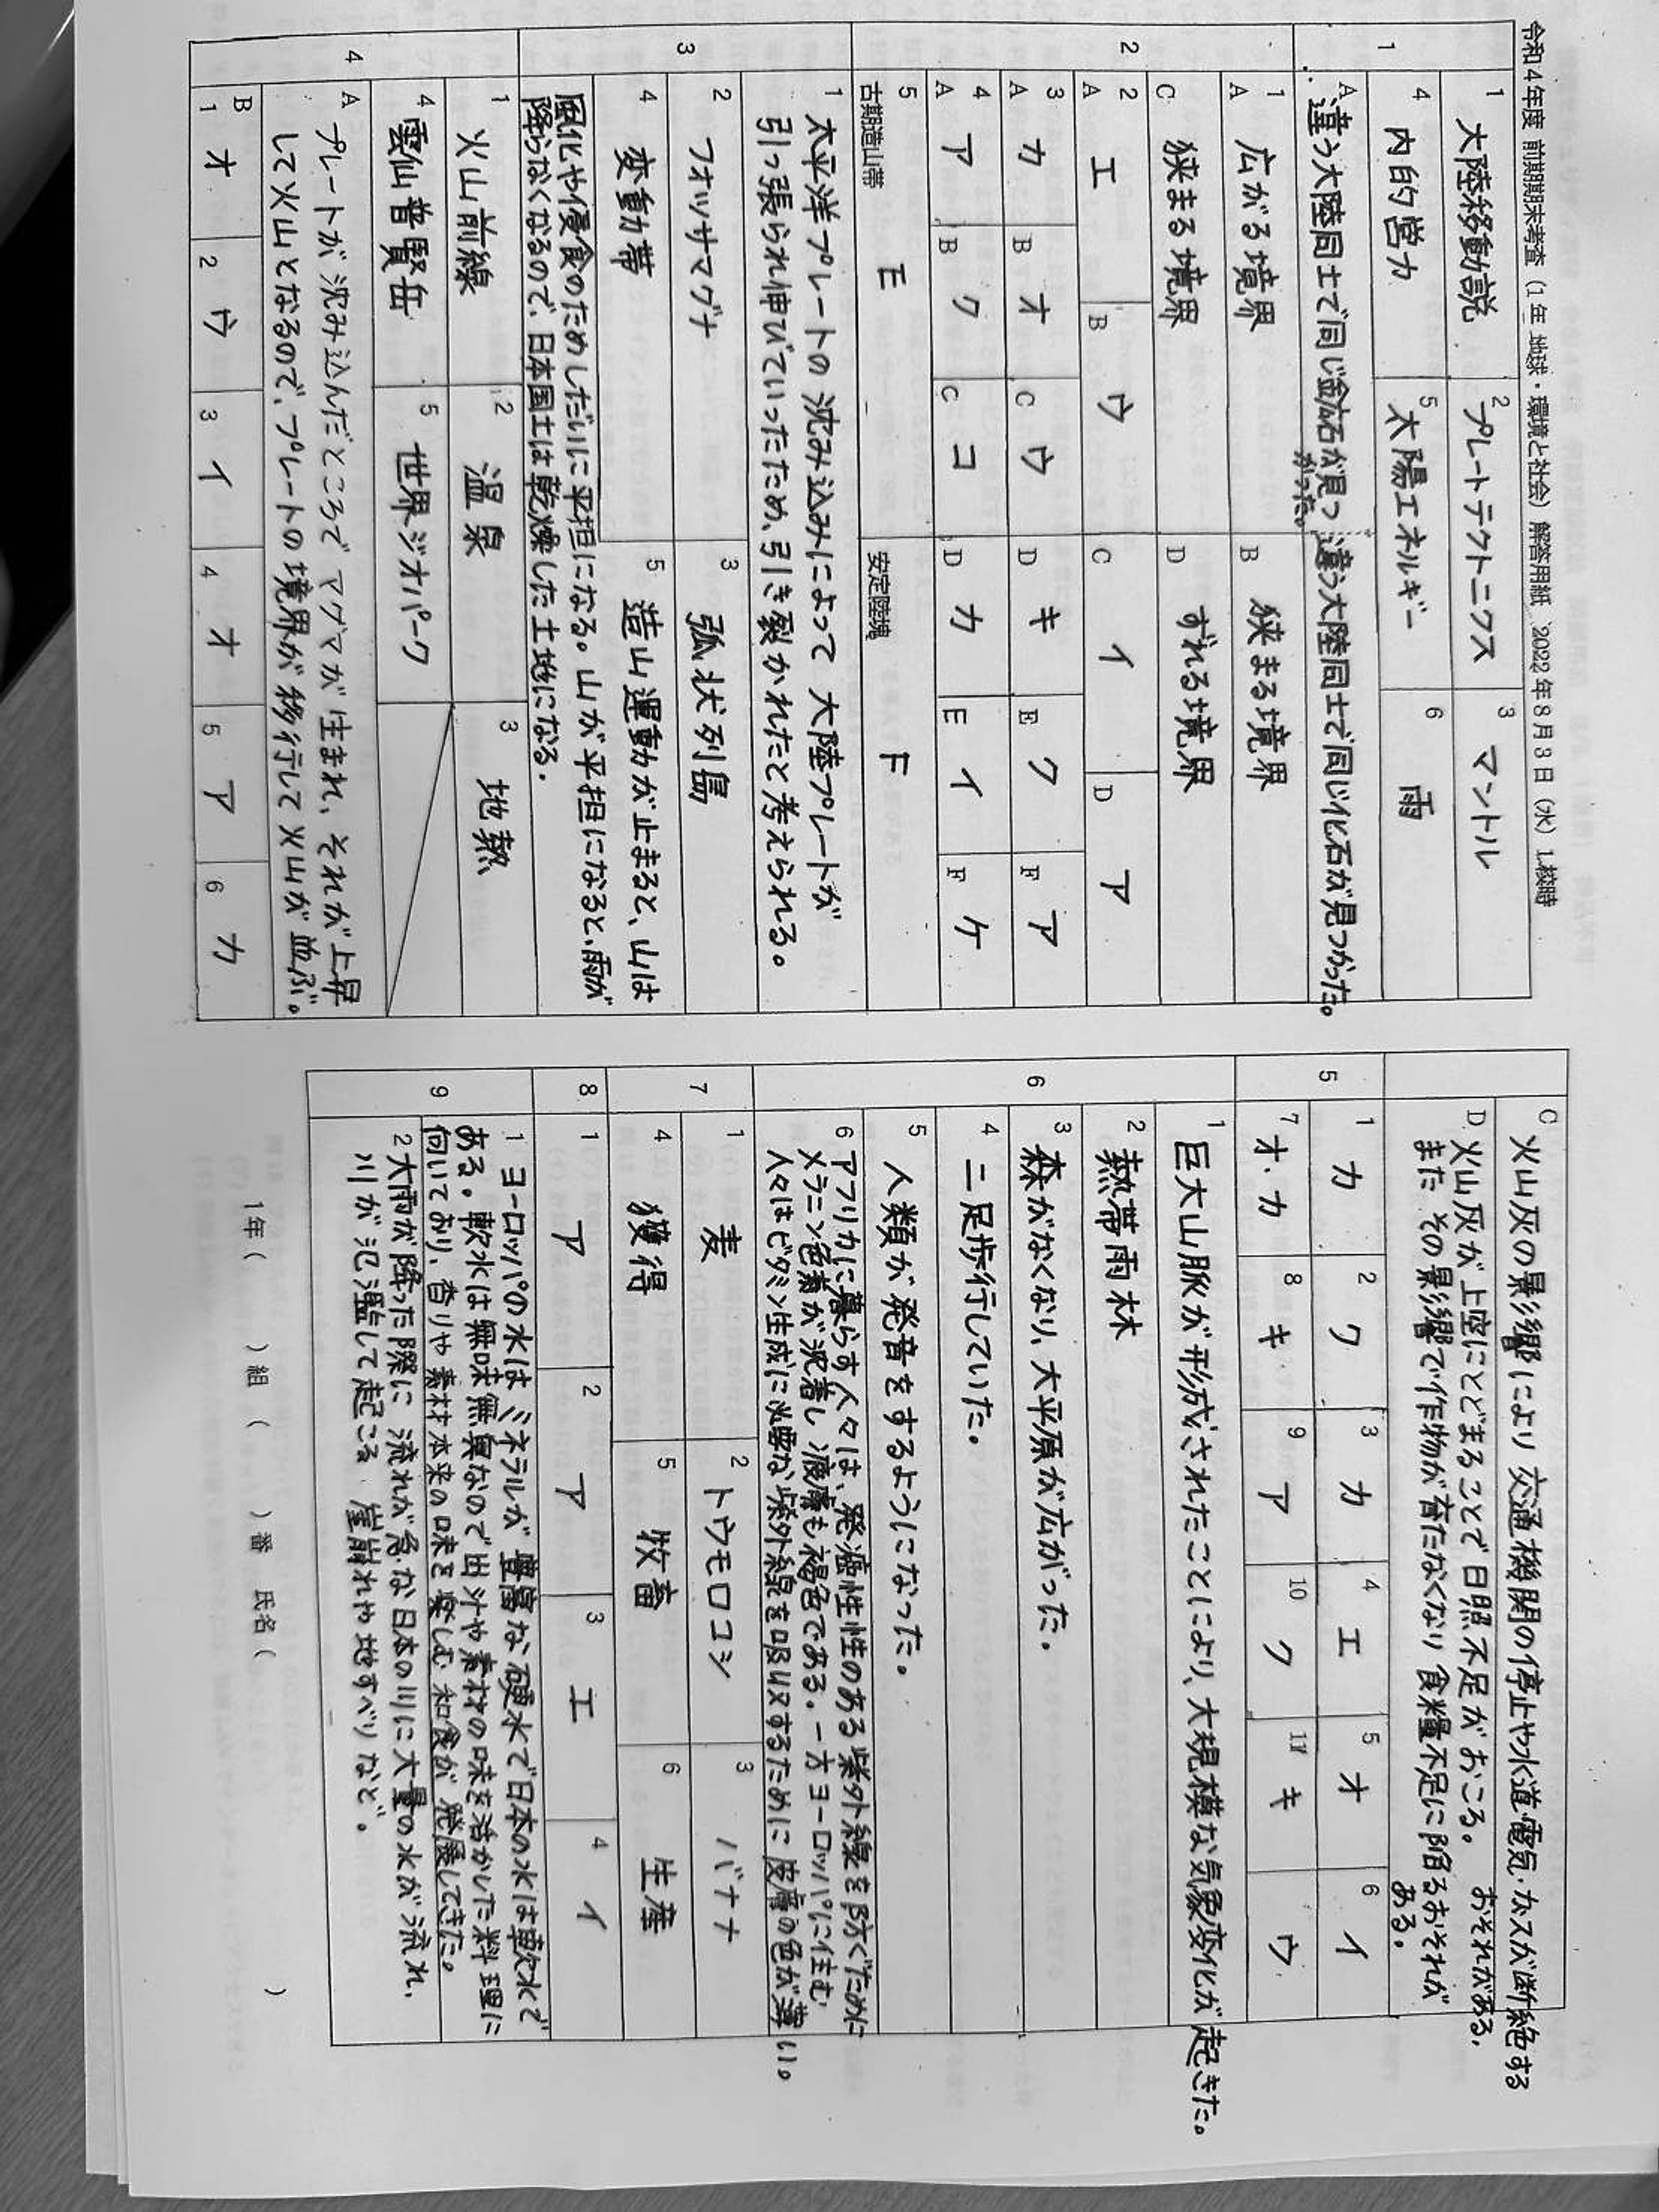 令和4年度 前期期末考査（1年 地球・環境と社会）解答用紙 2022年8月3日（水）1校時
1
1 大陸移動説
2 プレートテクトニクス
3 マントル
4 内的営力
5 太陽エネルギー
6 雨
A 違う大陸同士で同じ鉱石が見つかった。
違う大陸同士で同じ化石が見つかった。
2
1
A 広がる境界
B 狭まる境界
C 狭まる境界
D ずれる境界
2
A エ
B ウ
C イ
D ア
3
A カ
B オ
C ウ
D キ
E ク
F ア
4
A ア
B ク
C コ
D カ
E イ
F ケ
5
古期造山帯 E
安定陸塊 F
3
1 太平洋プレートの沈み込みによって大陸プレートが
引っ張られ伸びていったため、引き裂かれたと考えられる。
2 フォッサマグナ
3 弧状列島
4 変動帯
5 造山運動が止まると、山は
風化や侵食のためしだいに平担になる。山が平担になると、雨が
降らなくなるので、日本国土は乾燥した土地になる.
4
1 火山前線
2 温泉
3 地熱
4 雲仙普賢岳
5 世界ジオパーク
A プレートが沈み込んだところでマグマが生まれ、それが上昇
して火山となるので、プレートの境界が移行して火山が並ぶ。
B
1 オ
2 ウ
3 イ
4 オ
5 ア
6 カ
C 火山灰の影響により交通機関の停止や水道・電気・ガスが断絶する
おそれがある.
D 火山灰が上空にとどまることで日照不足がおこる。
また その影響で作物が育たなくなり食糧不足に陥るおそれが
ある。
5
1 カ
2 ク
3 カ
4 エ
5 オ
6 イ
7 オ・カ
8 キ
9 ア
10 ク
11 キ
ウ
6
1 巨大山脈が形成されたことにより、大規模な気象変化が起きた。
2 熱帯雨林
3 森がなくなり、大平原が広がった。
4 二足歩行していた。
5 人類が発音をするようになった。
6 アフリカに暮らす人々は、発癌性性のある紫外線を防ぐために
メラニン色素が沈着し皮膚も褐色である。一方ヨーロッパに住む
人々はビタミン生成に必要な紫外線を吸収するために皮膚の色が薄い。
7
1 麦
2 トウモロコシ
3 バナナ
4 獲得
5 牧畜
6 生産
8
1 ア
2 ア
3 エ
4 イ
9
1 ヨーロッパの水はミネラルが豊富な硬水で日本の水は軟水で
ある。軟水は無味無臭なので出汁や素材の味を活かした料理に
向いており、香りや素材本来の味を楽しむ和食が発展してきた。
2 大雨が降った際に流れが急な日本の川に大量の水が流れ、
川が氾濫して起こる 崖崩れや地すべりなど。
1年（　　）組（　　）番 氏名（　　　　）